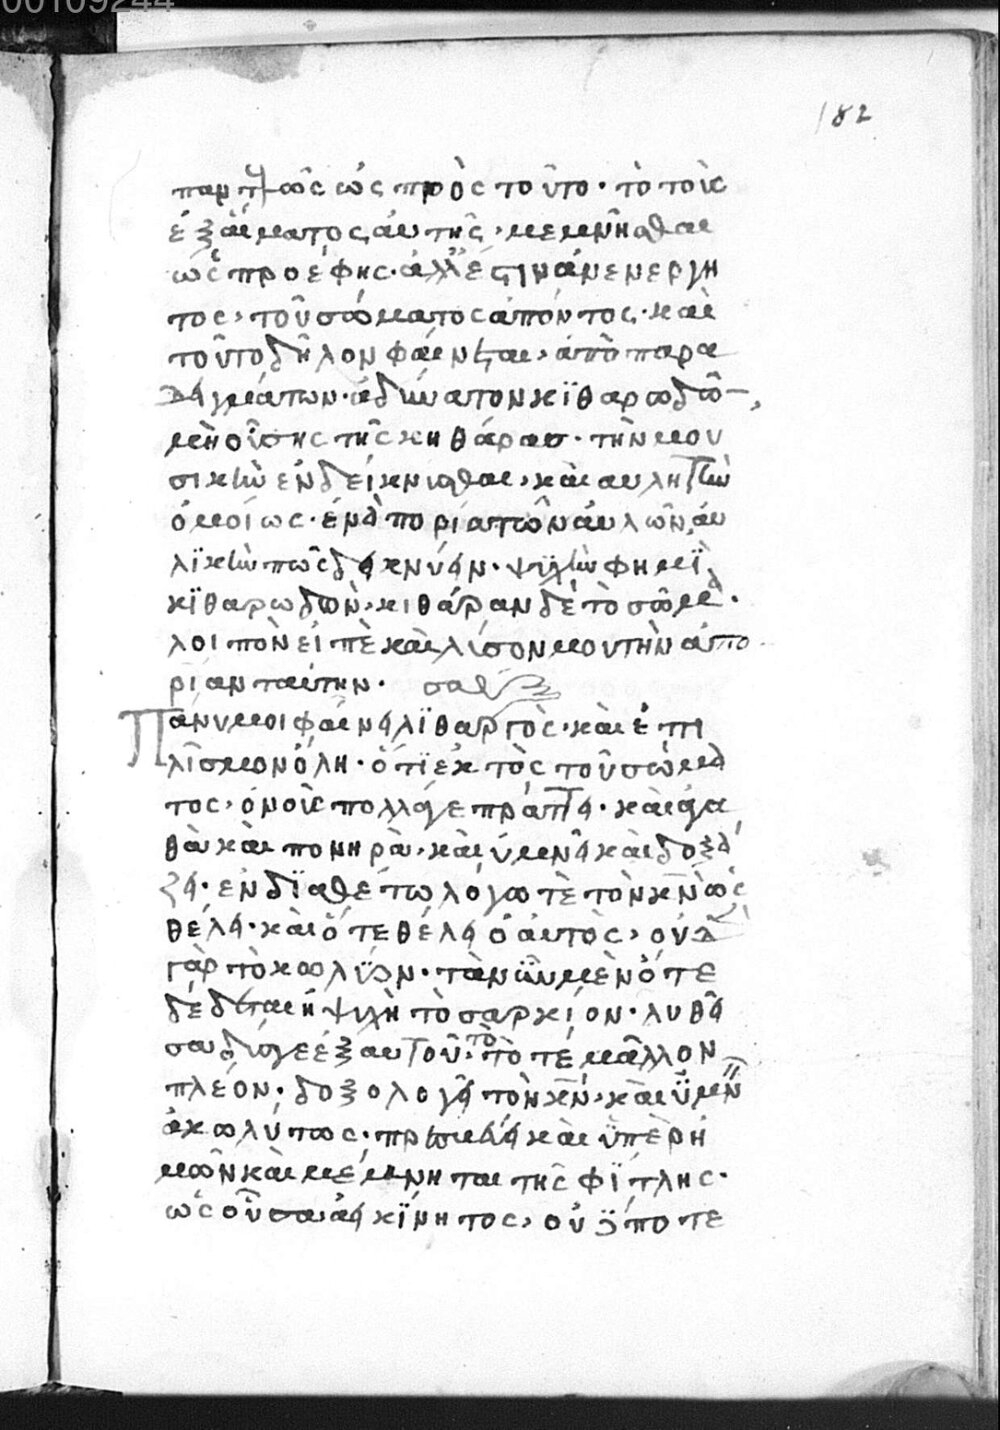 00109244
182
ὡς πρὸς τοῦτο· τὸ τοὺς
ἐξ αἵματος αὐτῆς, μεμνῆσθαι
ὡς προέφης· ἀλλ' ἔστιν ἀνενεργη
τος, τοῦ σώματος ἀπόντος· καὶ
τοῦτο δῆλον φαίνεται, ἀπὸ παρα
δειγμάτων· ἀδύνατον κϊθαρωδὸν
μὴ οὔσης τῆς κηθάρασ· τὴν μου
σικὴν ἐνδείκνισθαι, καὶ αυλητὴν
ὁμοίως· ἐν ἀπορία τῶν αὐλῶν, αυ
λϊκὴν πῶς δεικνύειν· ψϋχὴν φημϊ
κϊθαρωδὸν, κιθάραν δὲ τὸ σῶμα·
λοιπὸν εἰπὲ καὶ λῖσον μου τὴν ἀπο
ρίαν ταύτην·
Πάνυ μοι φαίνει λϊθαργὸς, καὶ ἐπι
λῖσμον ὅλη· ὅτϊ ἐκτὸς τοῦ σώμα
τος, ὁ νοῦς πολλά γε πράττει· καὶ αγα
θὰ καὶ πονηρὰ, καὶ ὑμνεῖ καὶ δοξά
ζει· ἐνδϊαθέτω λόγω τὲ τὸν κν ὡς
θέλει· καὶ ὅτε θέλει ὁ αὐτὸς, οὐδὲ
γὰρ τὸ κωλῦον· τανῦν μὲν ὅτε
δέδεται ἡ ψυχὴ τὸ σαρκίον· λυθεῖ
σα δέ γε ἐξ αυτοῦ· τὸ τότε μᾶλλον
πλέον· δοξολογεῖ τὸν κν, καὶ ϋμν
ἀκωλύτως· πρεσβεύει καὶ ϋπὲρ ἡ
μῶν καὶ μέμνηται τῆς φΐτλης·
ὡς οὖσα ἀεικΐνητος, οὐ